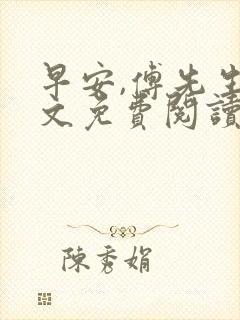 早安,傅先生
文免費閱讀
陳秀娟